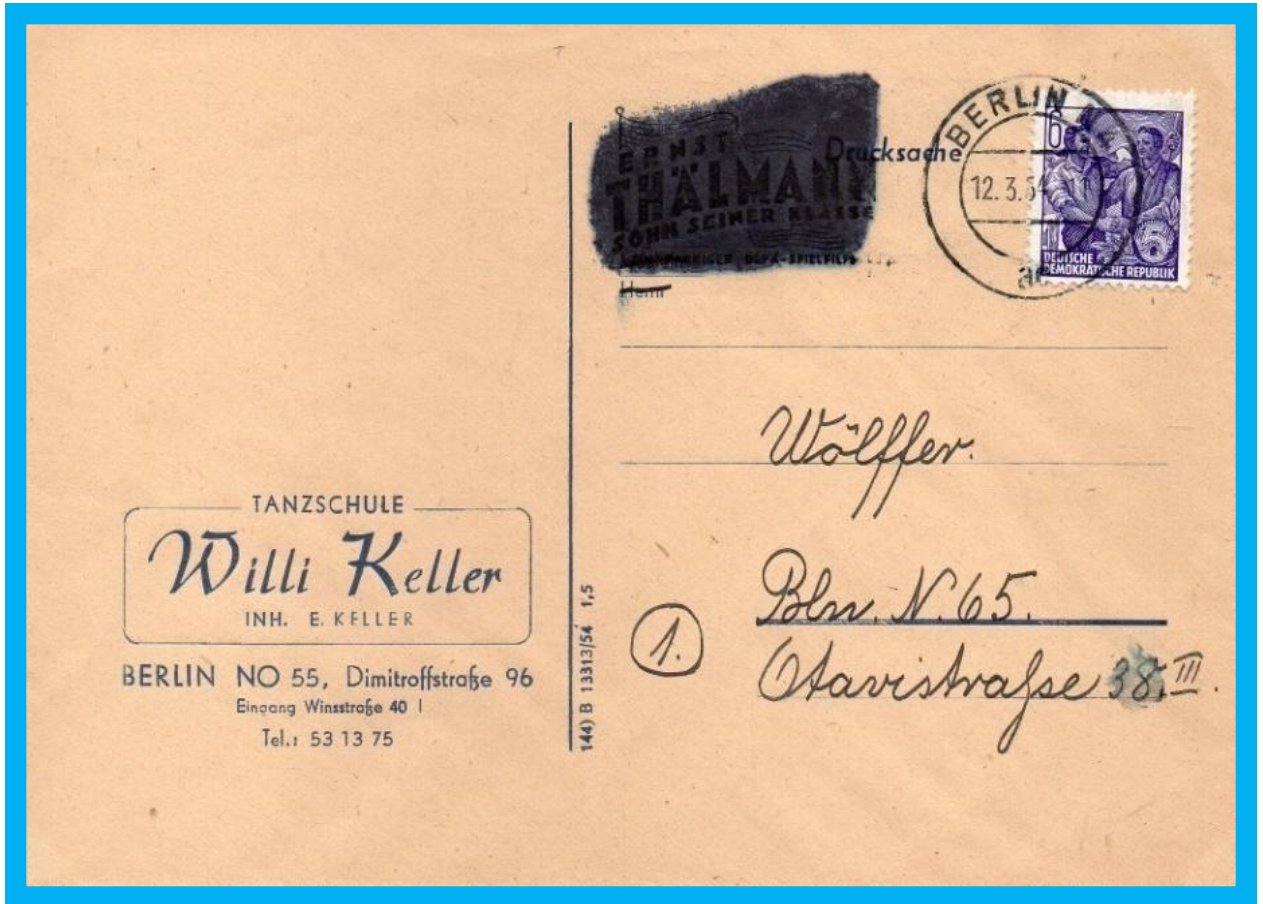 ERNST
THÄLMANN
SOHN SEINER KLASSE
DEFA-SPIELFILM
Drucksache
BERLIN
12.3.54
6
DEUTSCHE
DEMOKRATISCHE REPUBLIK
Herrn
Wölffer.
Bln. N. 65.
Otavistraße 38. III.
1.
TANZSCHULE
Willi Keller
INH. E. KELLER
BERLIN NO 55, Dimitroffstraße 96
Eingang Winsstraße 40 I
Tel.: 53 13 75
144) B 13313/54 1,5